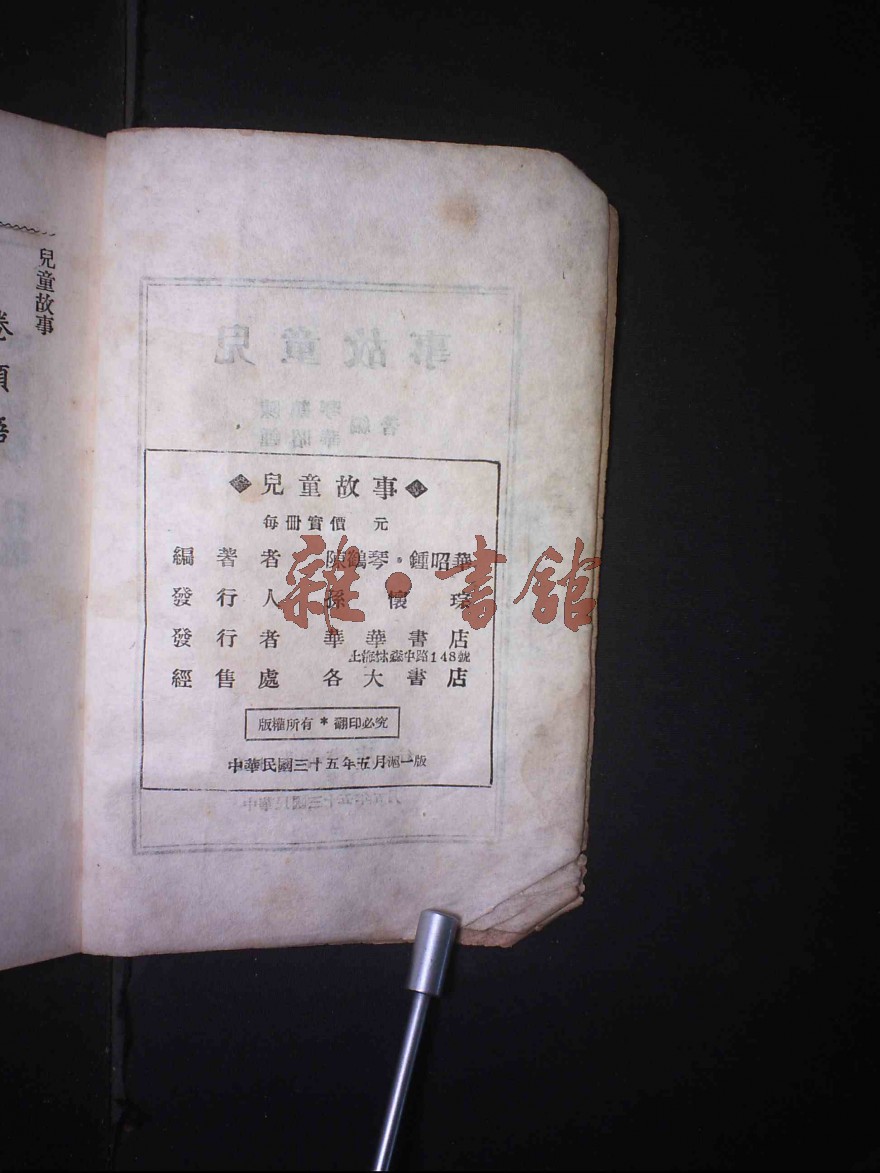 兒童故事
卷頭語
兒童故事
每冊實價 元
編著者 陳鶴琴・鍾昭華
發行人 孫懷琮
發行者 華華書店
上海林森中路148號
經售處 各大書店
版權所有*翻印必究
中華民國三十五年五月滬一版
雜·書館